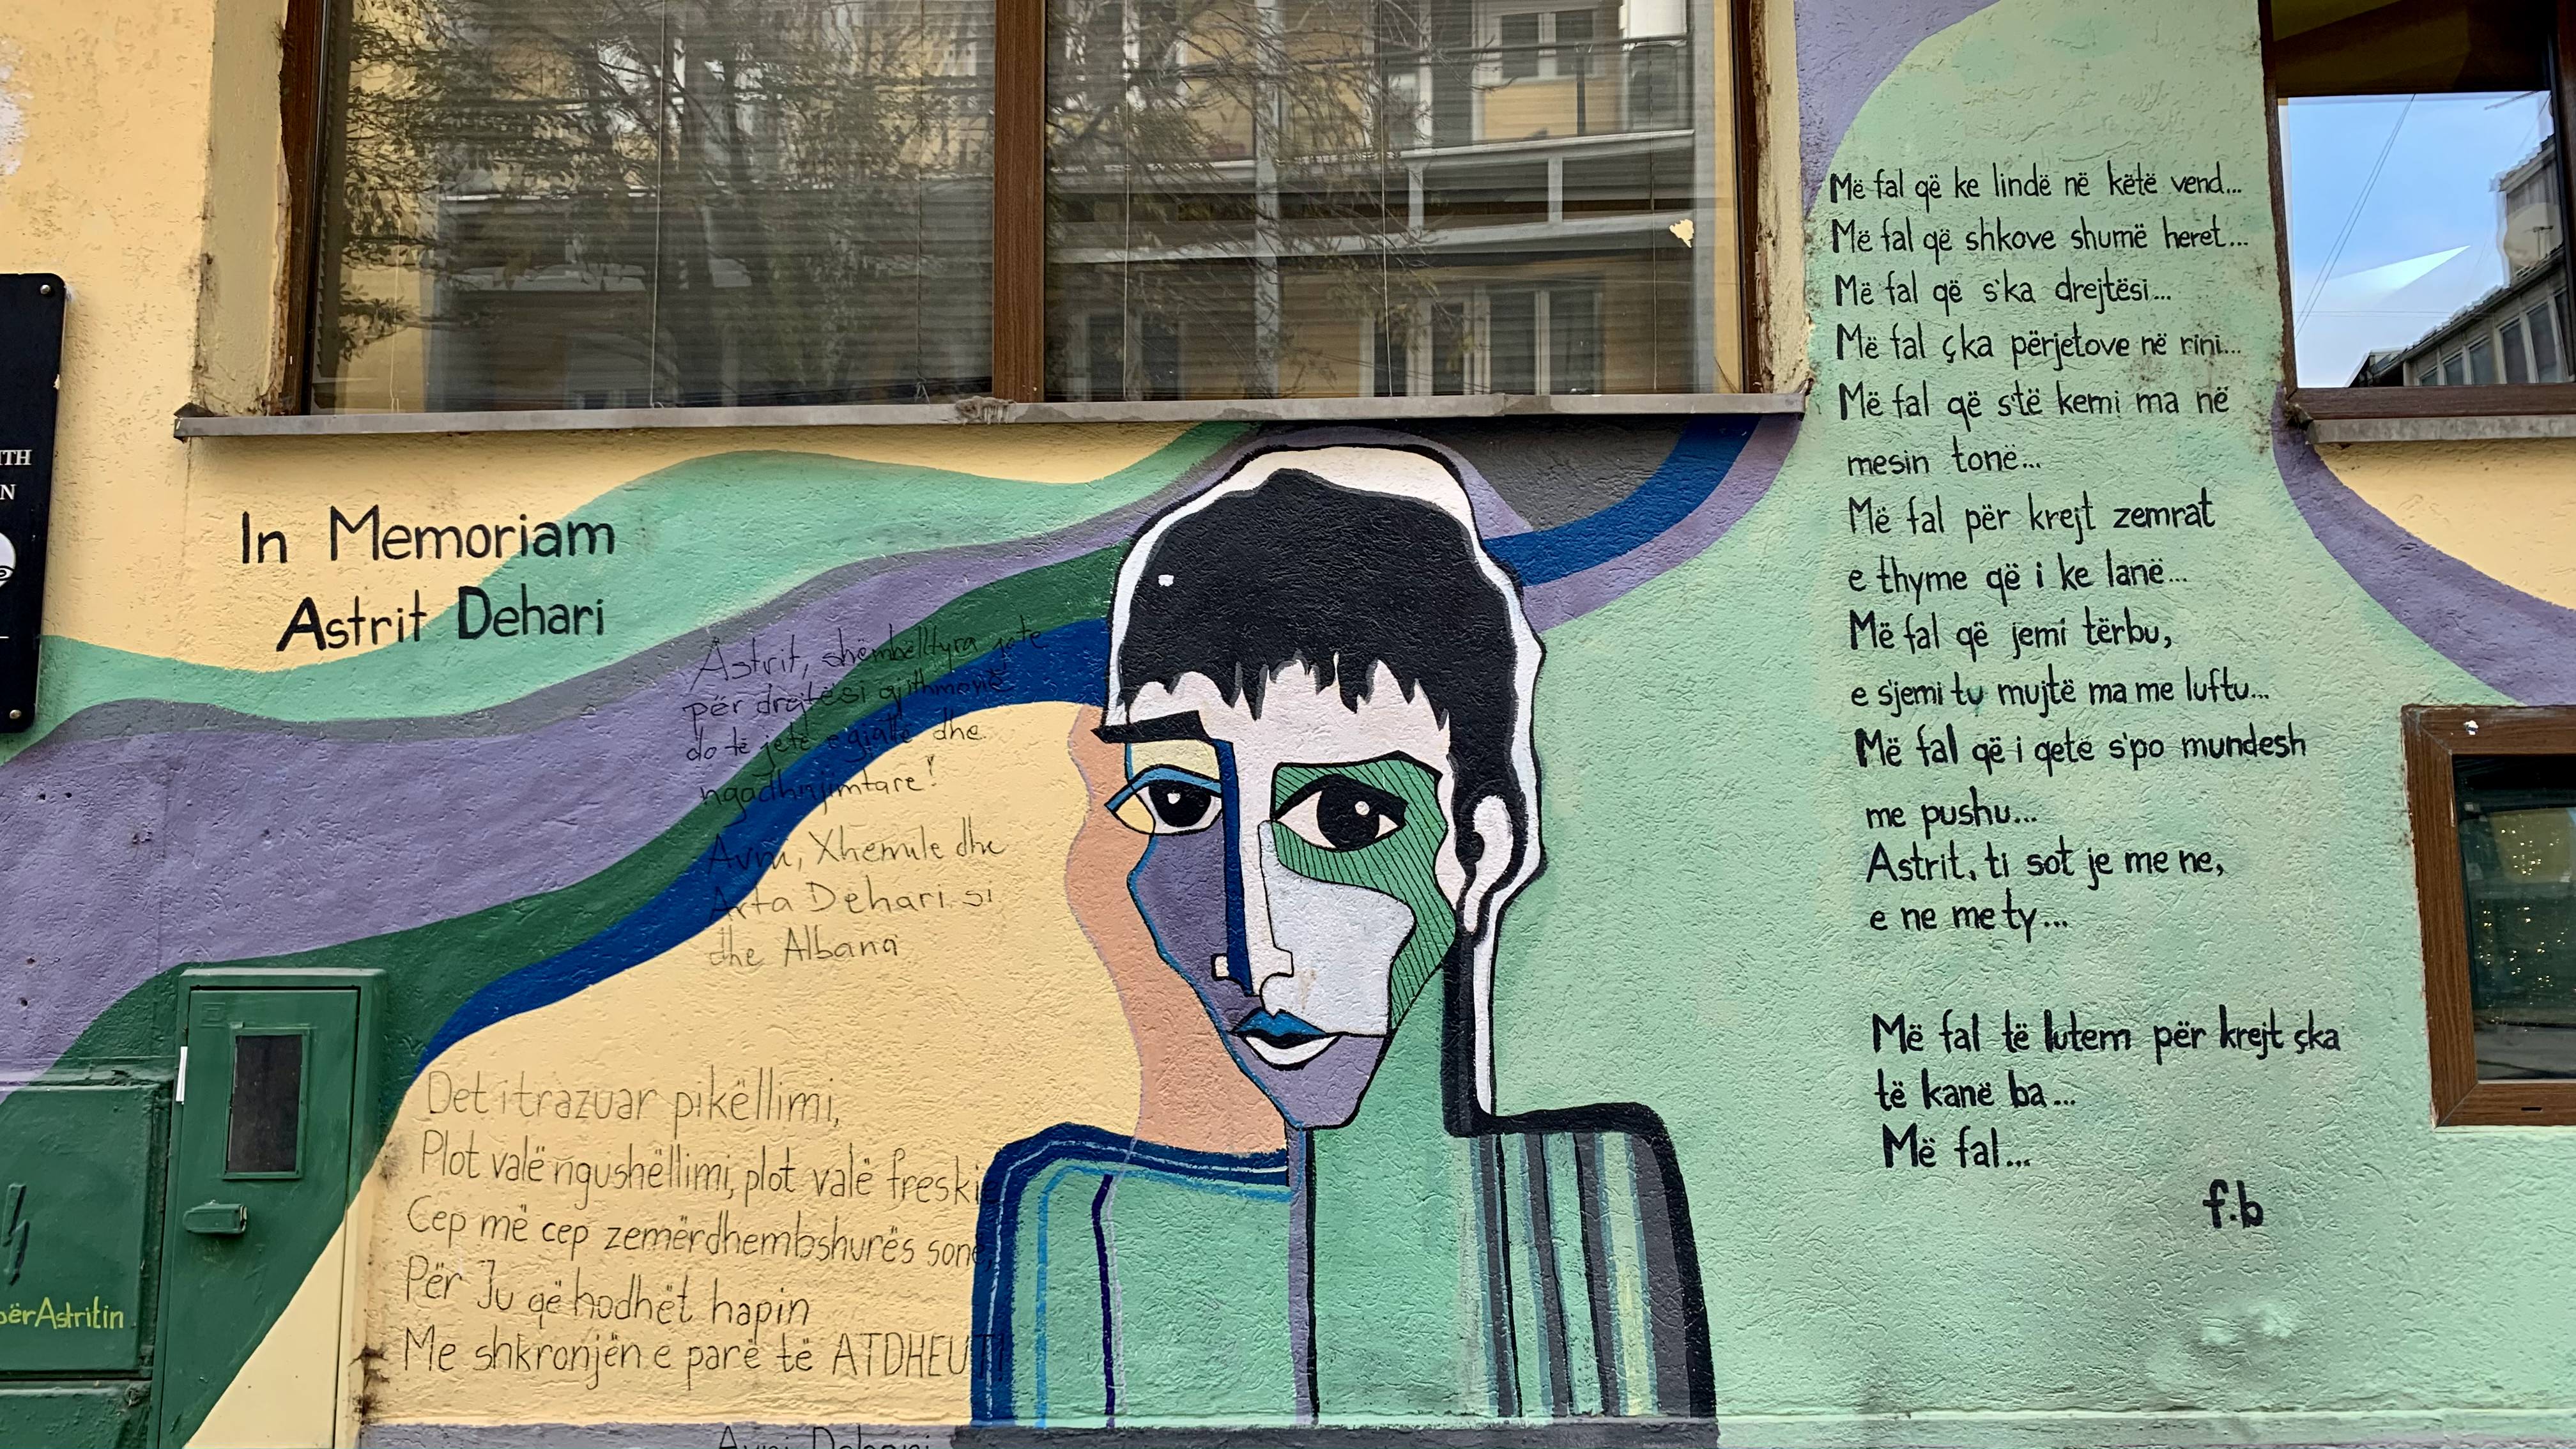 ITH
N
In Memoriam
Astrit Dehari
Astrit, shëmbelltyra jote
për drejtësi gjithmonë
do të jetë e gjatë dhe
ngadhnjimtare!
Avni, Xhemile dhe
Arta Dehari si
dhe Albana
Det i trazuar pikëllimi,
Plot valë ngushëllimi, plot valë freski
Cep më cep zemërdhembshurës sonë,
Për Ju që hodhët hapin
Me shkronjën e parë të ATDHEUT!
Avni Dehari
përAstritin
Më fal që ke lindë në këtë vend...
Më fal që shkove shumë heret...
Më fal që s'ka drejtësi...
Më fal çka përjetove në rini...
Më fal që s'të kemi ma në
mesin tonë...
Më fal për krejt zemrat
e thyme që i ke lanë...
Më fal që jemi tërbu,
e s'jemi tu mujtë ma me luftu...
Më fal që i qetë s'po mundesh
me pushu...
Astrit, ti sot je me ne,
e ne me ty...
Më fal të lutem për krejt çka
të kanë ba...
Më fal...
f.b